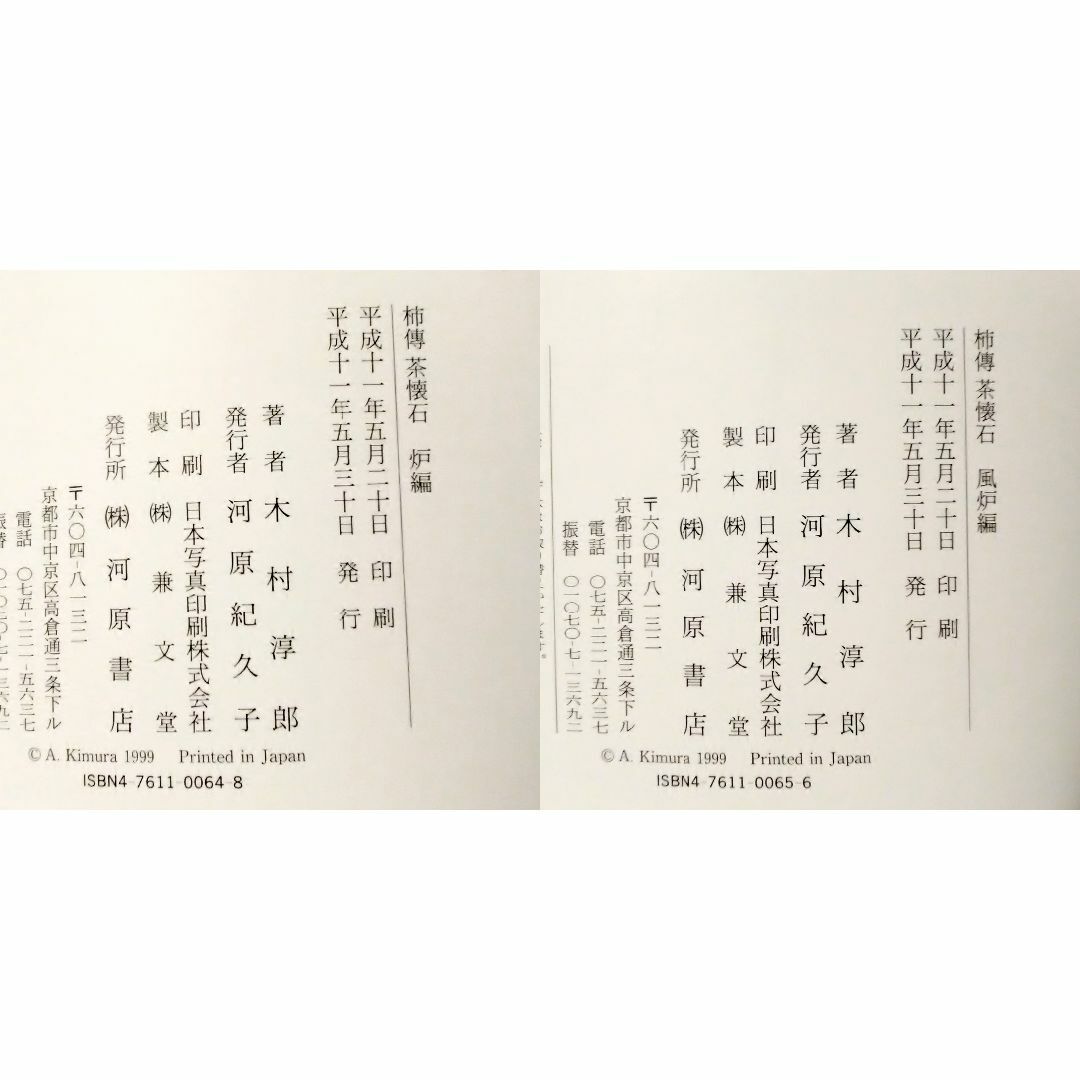 柿傳 茶懐石 炉編
平成十一年五月二十日 印刷
平成十一年五月三十日 発行
著者 木村淳郎
発行者 河原紀久子
印刷 日本写真印刷株式会社
製本 ㈱兼文堂
発行所 ㈱河原書店
〒六〇四-八一三二
京都市中京区高倉通三条下ル
電話 〇七五-二二一-五六三七
振替 〇一〇七〇-七-一三六九二
© A. Kimura 1999 Printed in Japan
ISBN4-7611-0064-8
柿傳 茶懐石 風炉編
平成十一年五月二十日 印刷
平成十一年五月三十日 発行
著者 木村淳郎
発行者 河原紀久子
印刷 日本写真印刷株式会社
製本 ㈱兼文堂
発行所 ㈱河原書店
〒六〇四-八一三二
京都市中京区高倉通三条下ル
電話 〇七五-二二一-五六三七
振替 〇一〇七〇-七-一三六九二
© A. Kimura 1999 Printed in Japan
ISBN4-7611-0065-6